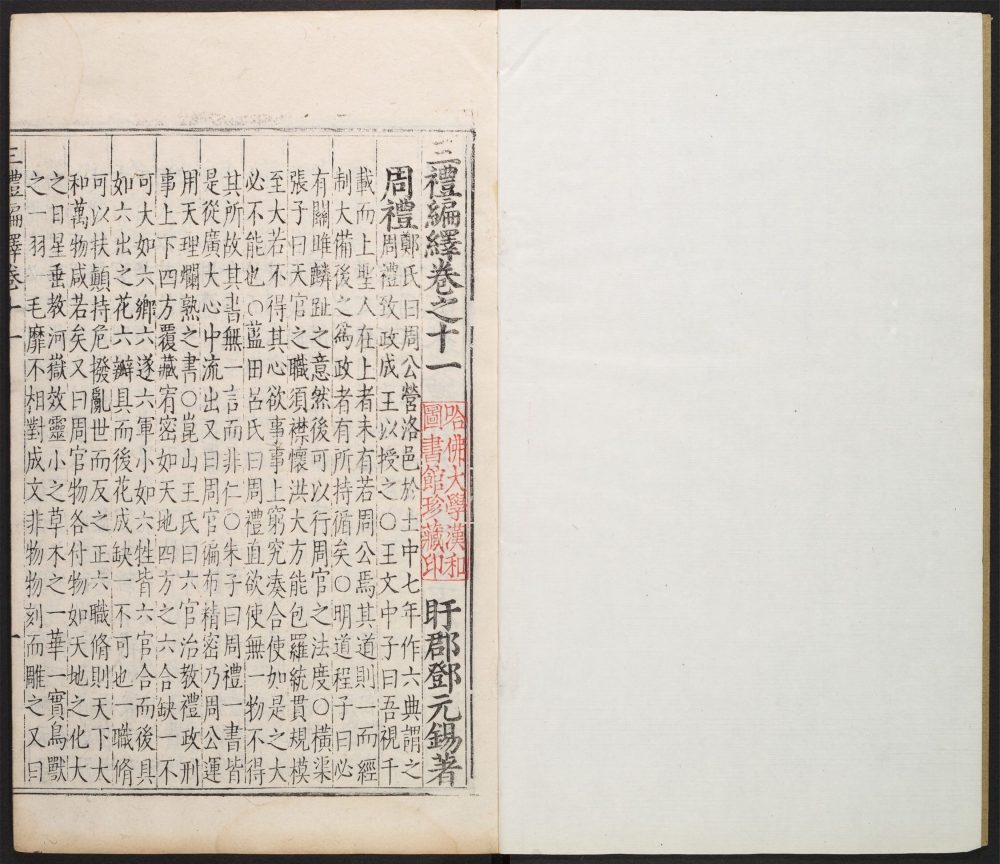 三禮編繹卷之十一
哈佛大學漢和
圖書館珍藏印
盱郡鄧元錫著
周禮
鄭氏曰周公營洛邑於土中七年作六典謂之
周禮致政成王以授之○王文中子曰吾視千
載而上聖人在上者未有若周公焉其道則一而經
制大備後之爲政者有所持循矣○明道程子曰必
有關雎麟趾之意然後可以行周官之法度○橫渠
張子曰天官之職須襟懷洪大方能包羅統貫規模
至大若不得其心欲事事上窮究湊合使如是之大
必不能也○藍田呂氏曰周禮直欲使無一物不得
其所故其書無一言而非仁○朱子曰周禮一書皆
是從廣大心中流出又曰周官徧布精密乃周公運
用天理爛熟之書○崑山王氏曰六官治教禮政刑
事上下四方覆藏宥密如天地四方之六合缺一不
可大如六鄉六遂六軍小如六牲皆六官合而後具
如六出之花六瓣具而後花成缺一不可也一職脩
可以扶顛持危撥亂世而反之正六職脩則天下大
和萬物咸若矣又曰周官物各付物如天地之化大
之日星垂教河嶽效靈小之草木之一華一實鳥獸
之一羽一毛靡不相對成文非物物刻而雕之又曰
三禮編繹卷十一
一